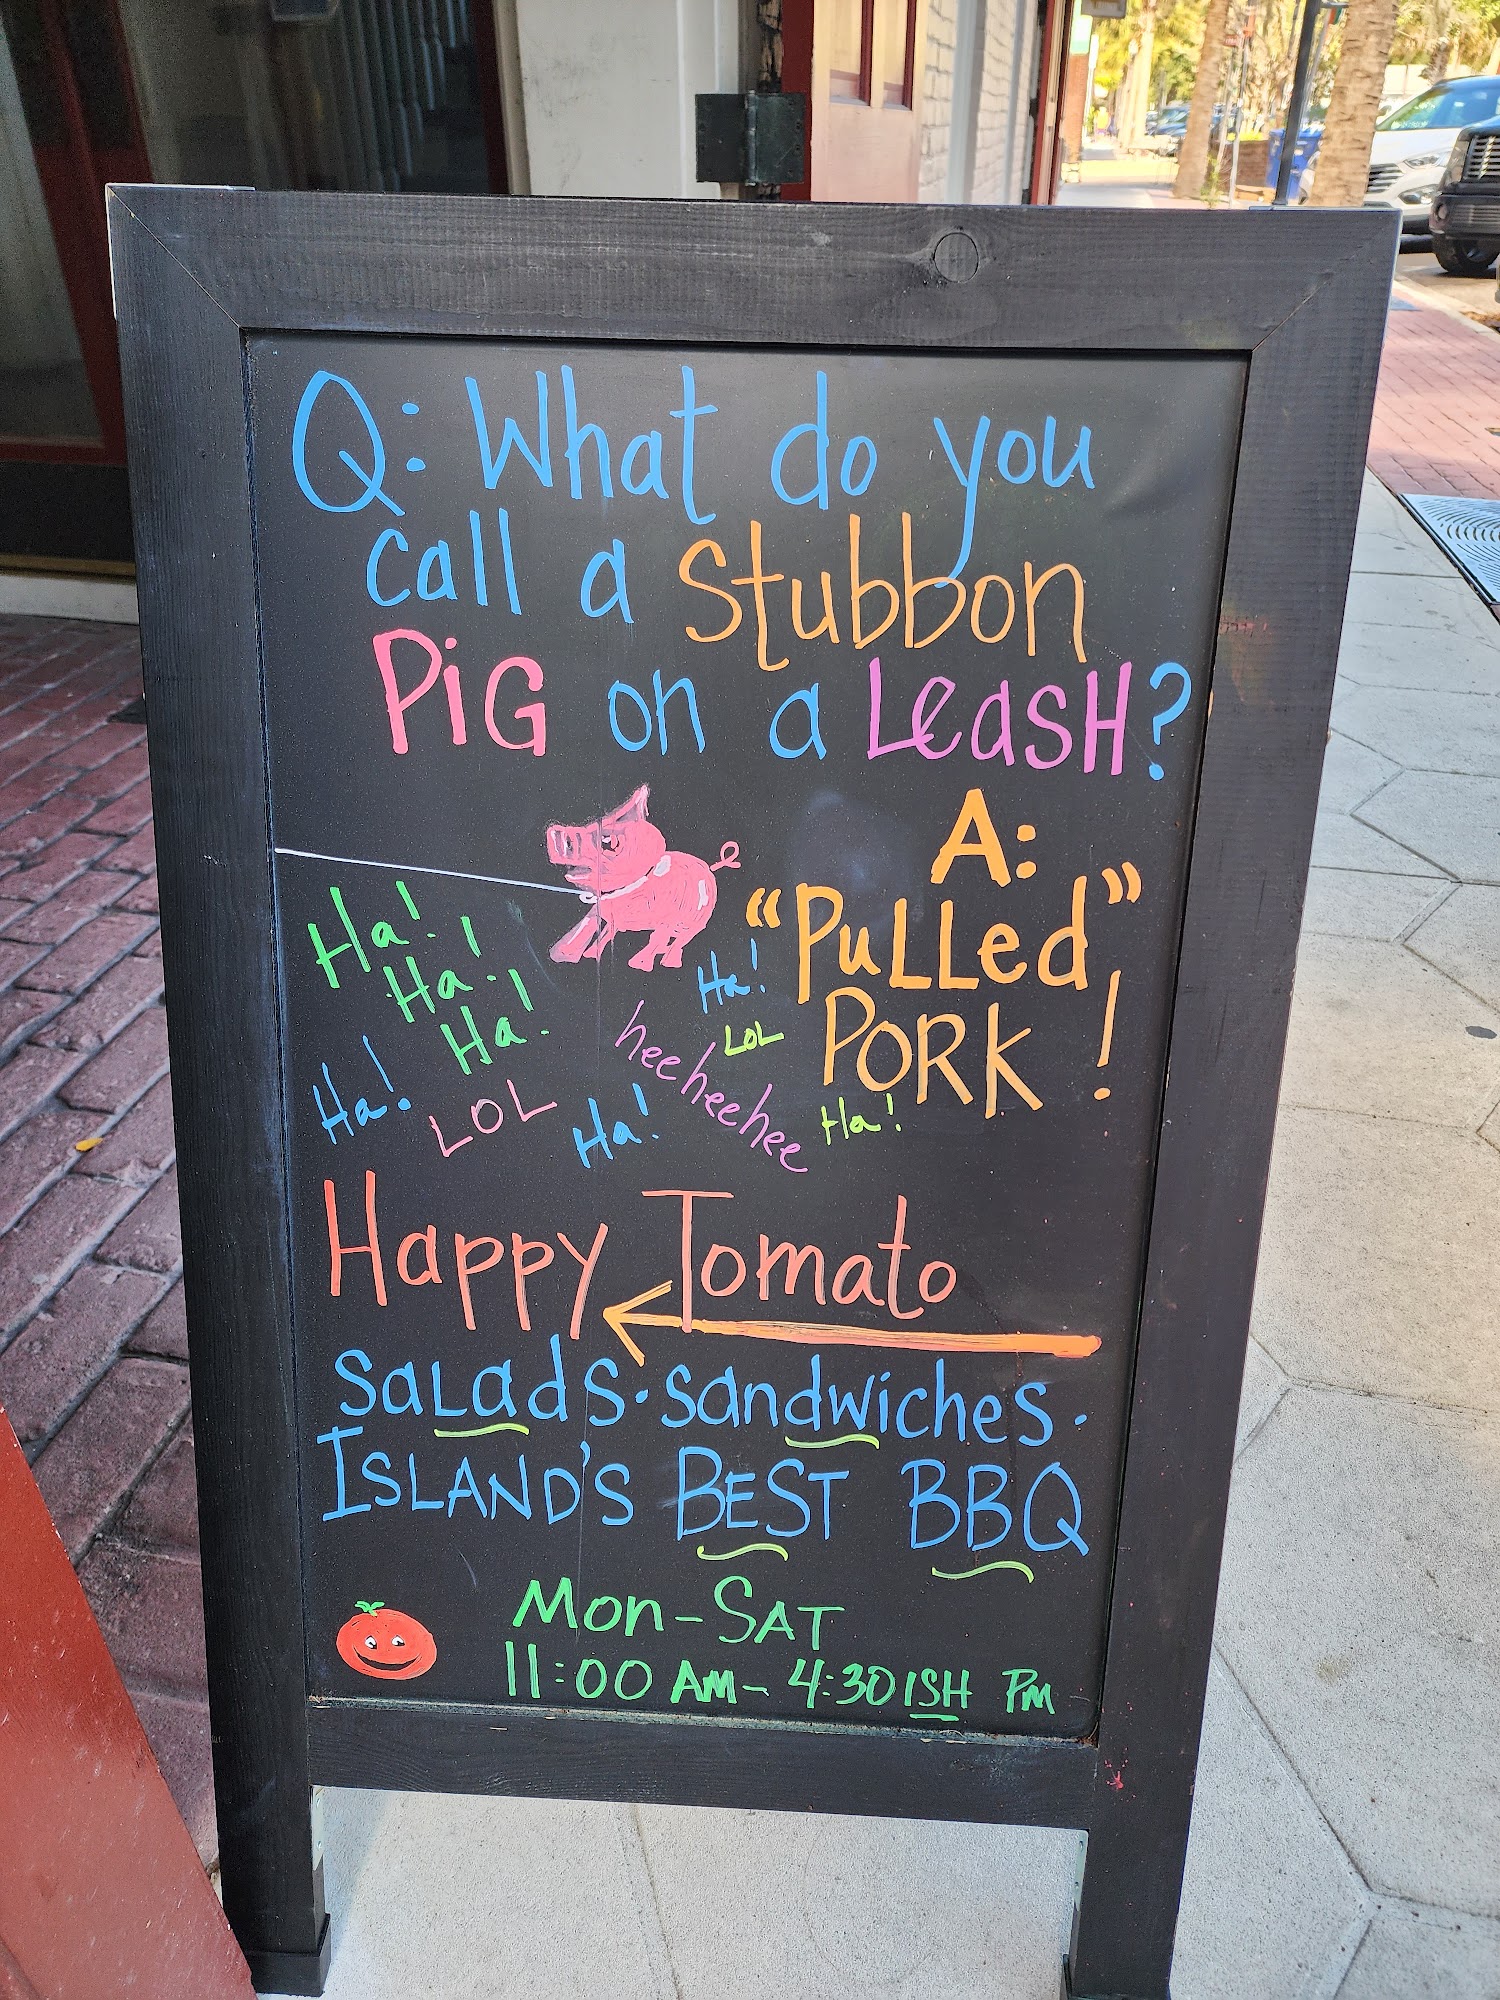 Q: What do you
call a stubbon
PiG on a LeasH?
A:
"PuLLed"
PORK!
Ha!
Ha!
Ha!
Ha!
LOL
Ha!
heeheehee
Ha!
LOL
Ha!
Happy Tomato
SaLads·sandwiches·
ISLAND'S BEST BBQ
Mon-SAT
11:00 AM- 4:30ISH PM